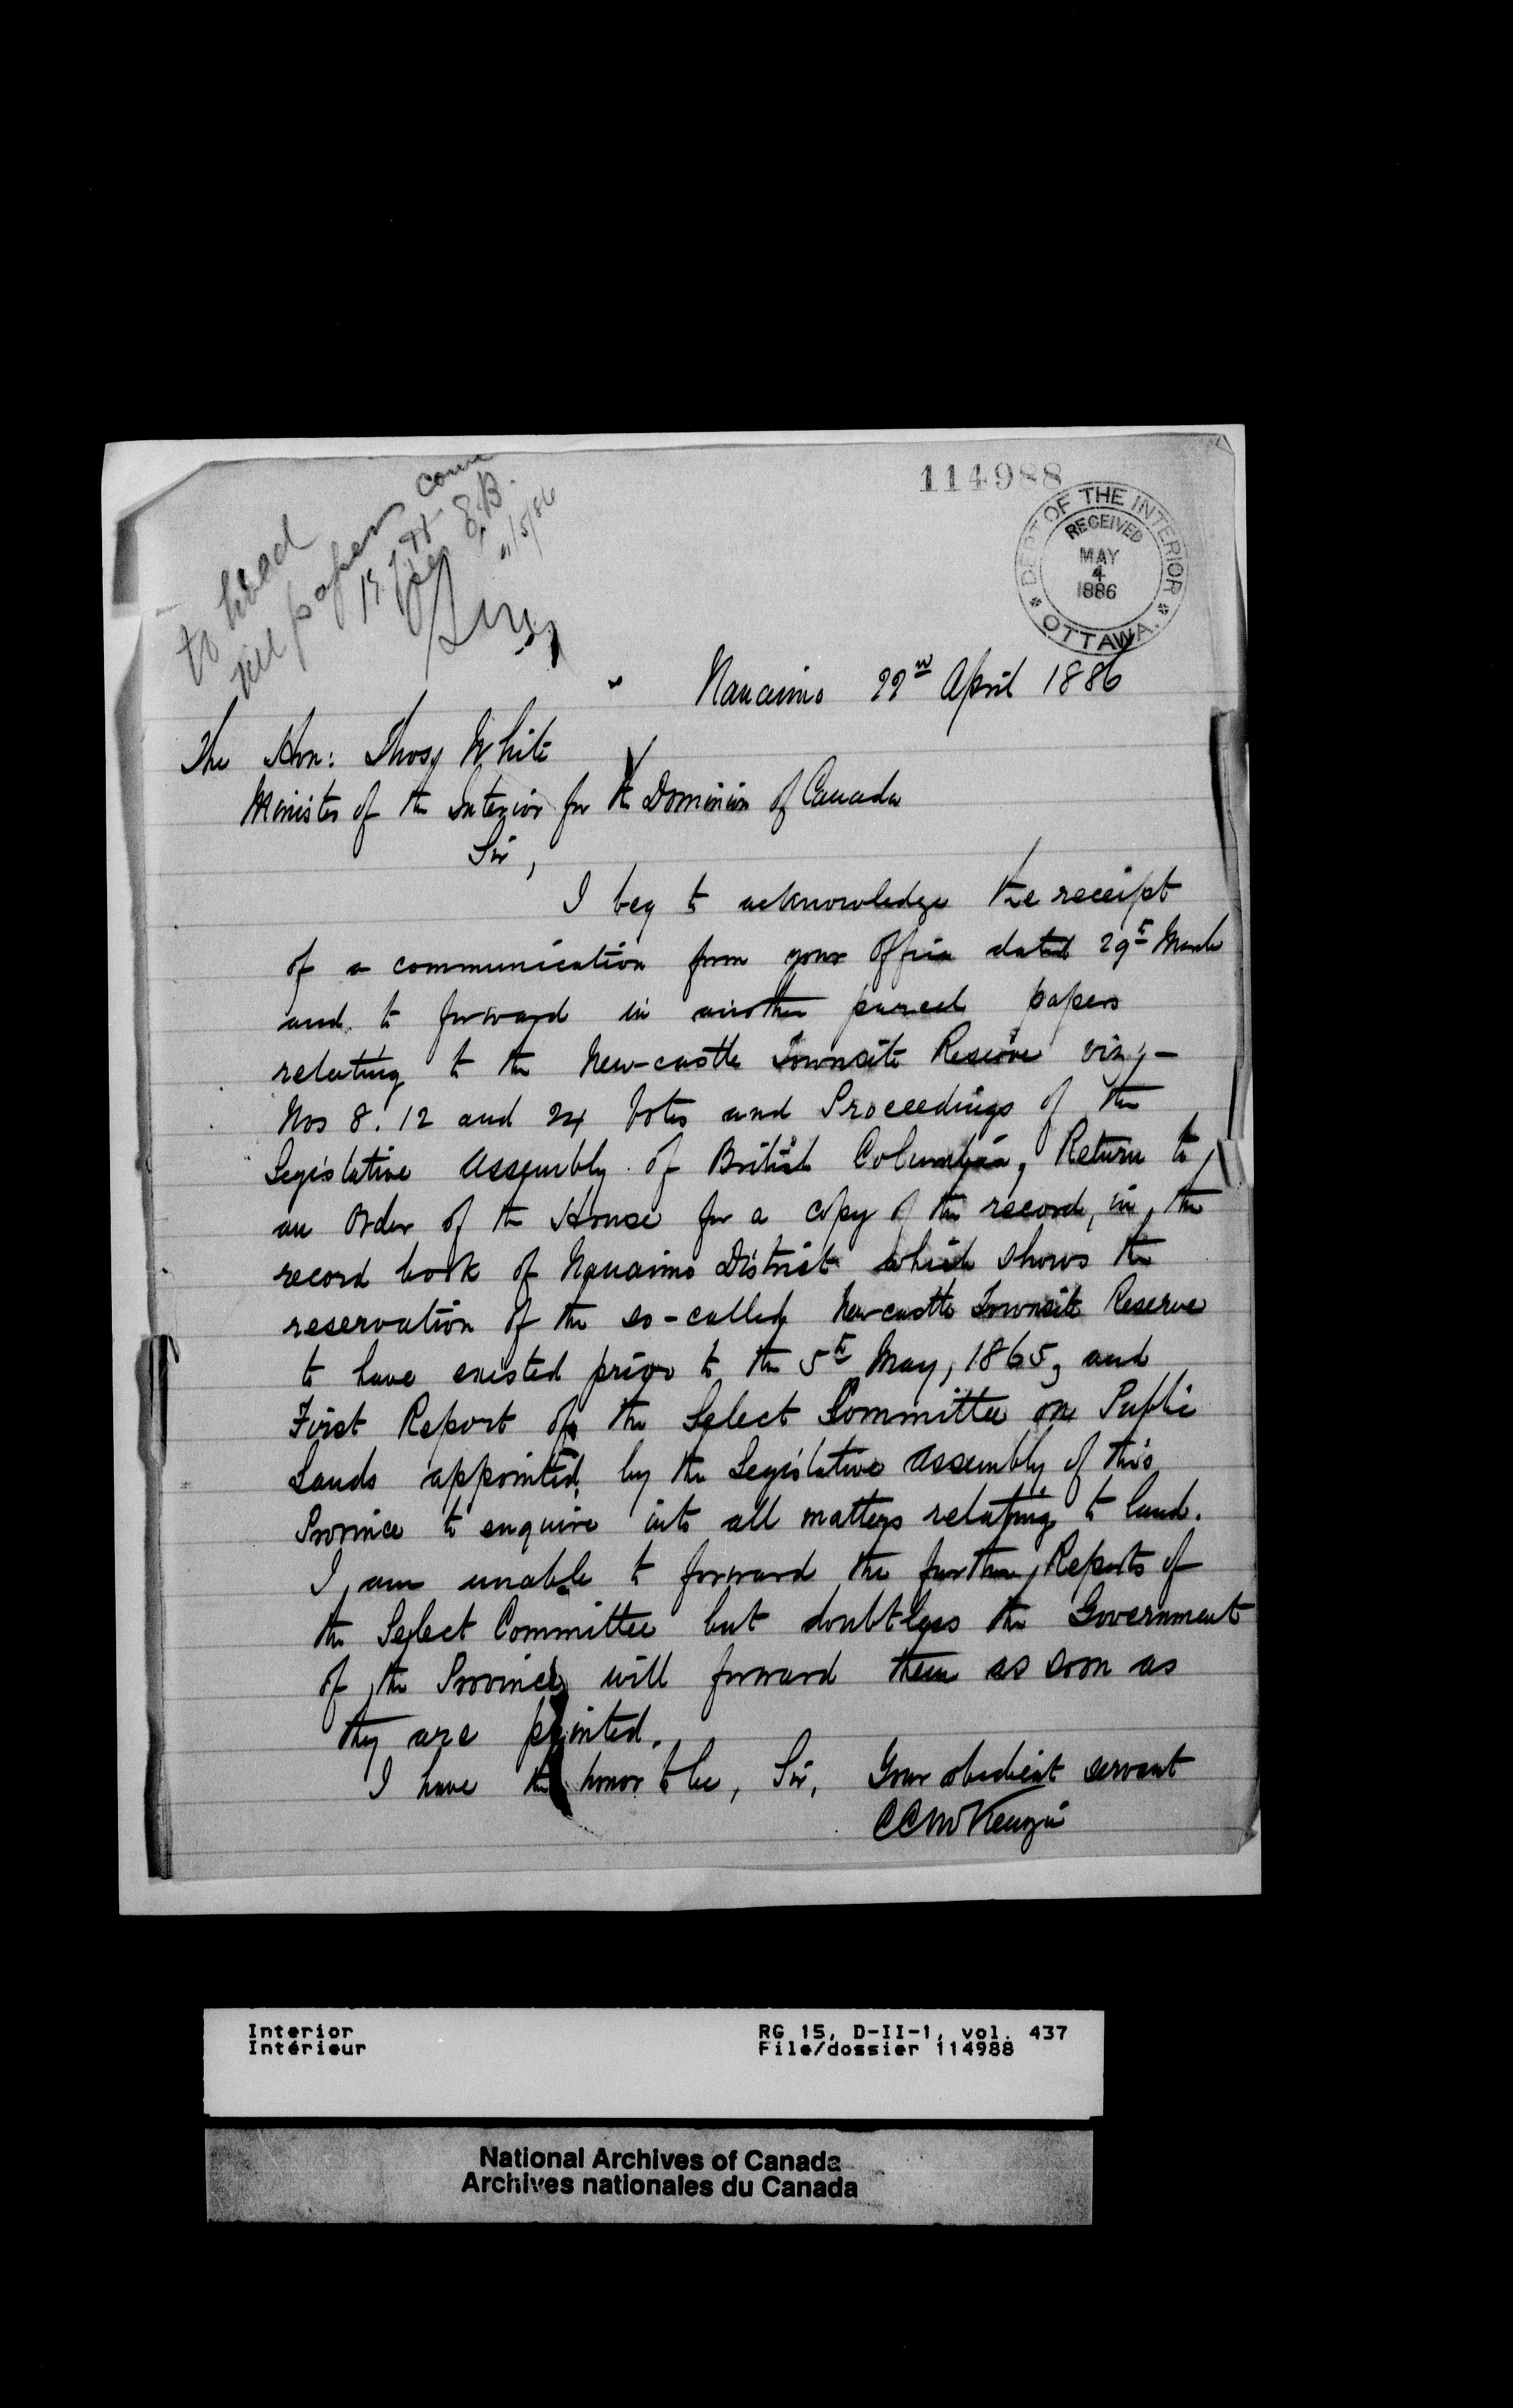 114988
DEPT OF THE INTERIOR
RECEIVED
MAY
4
1886
OTTAWA.
to head
till papers come
E.B.
11/5/86
Nanaimo 22nd April 1886
The Hon: Thos. White
Minister of the Interior for the Dominion of Canada
Sir,
I beg to acknowledge the receipt
of a communication from your Office dated 29th March
and to forward in another parcel papers
relating to the New-castle Townsite Reserve viz:-
Nos 8. 12 and 24 Votes and Proceedings of the
Legislative Assembly of British Columbia, Return to
an Order of the House for a copy of the record, in the
record book of Nanaimo District which shows the
reservation of the so-called Newcastle Townsite Reserve
to have existed prior to the 5th May, 1865, and
First Report of the Select Committee on Public
Lands appointed by the Legislative Assembly of this
Province to enquire into all matters relating to land.
I am unable to forward the further Reports of
the Select Committee but doubtless the Government
of the Province will forward them as soon as
they are printed.
I have the honor to be, Sir, Your obedient servant
CC McKenzie
Interior
Intérieur
RG 15, D-II-1, vol. 437
File/dossier 114988
National Archives of Canada
Archives nationales du Canada